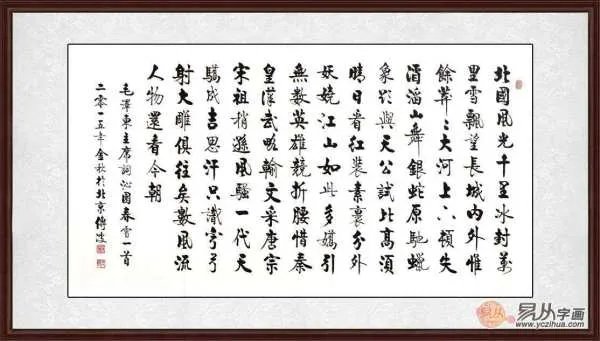 北國風光千里冰封萬
里雪飄望長城內外惟
餘莽〻大河上下頓失
滔滔山舞銀蛇原馳蠟
象欲與天公試比高須
晴日看紅裝素裹分外
妖嬈江山如此多嬌引
無數英雄競折腰惜秦
皇漢武略輸文采唐宗
宋祖稍遜風騷一代天
驕成吉思汗只識彎弓
射大雕俱往矣數風流
人物還看今朝
毛澤東主席詞沁園春雪一首
二零一五年金秋於北京傅
易从字画
www.yczihua.com